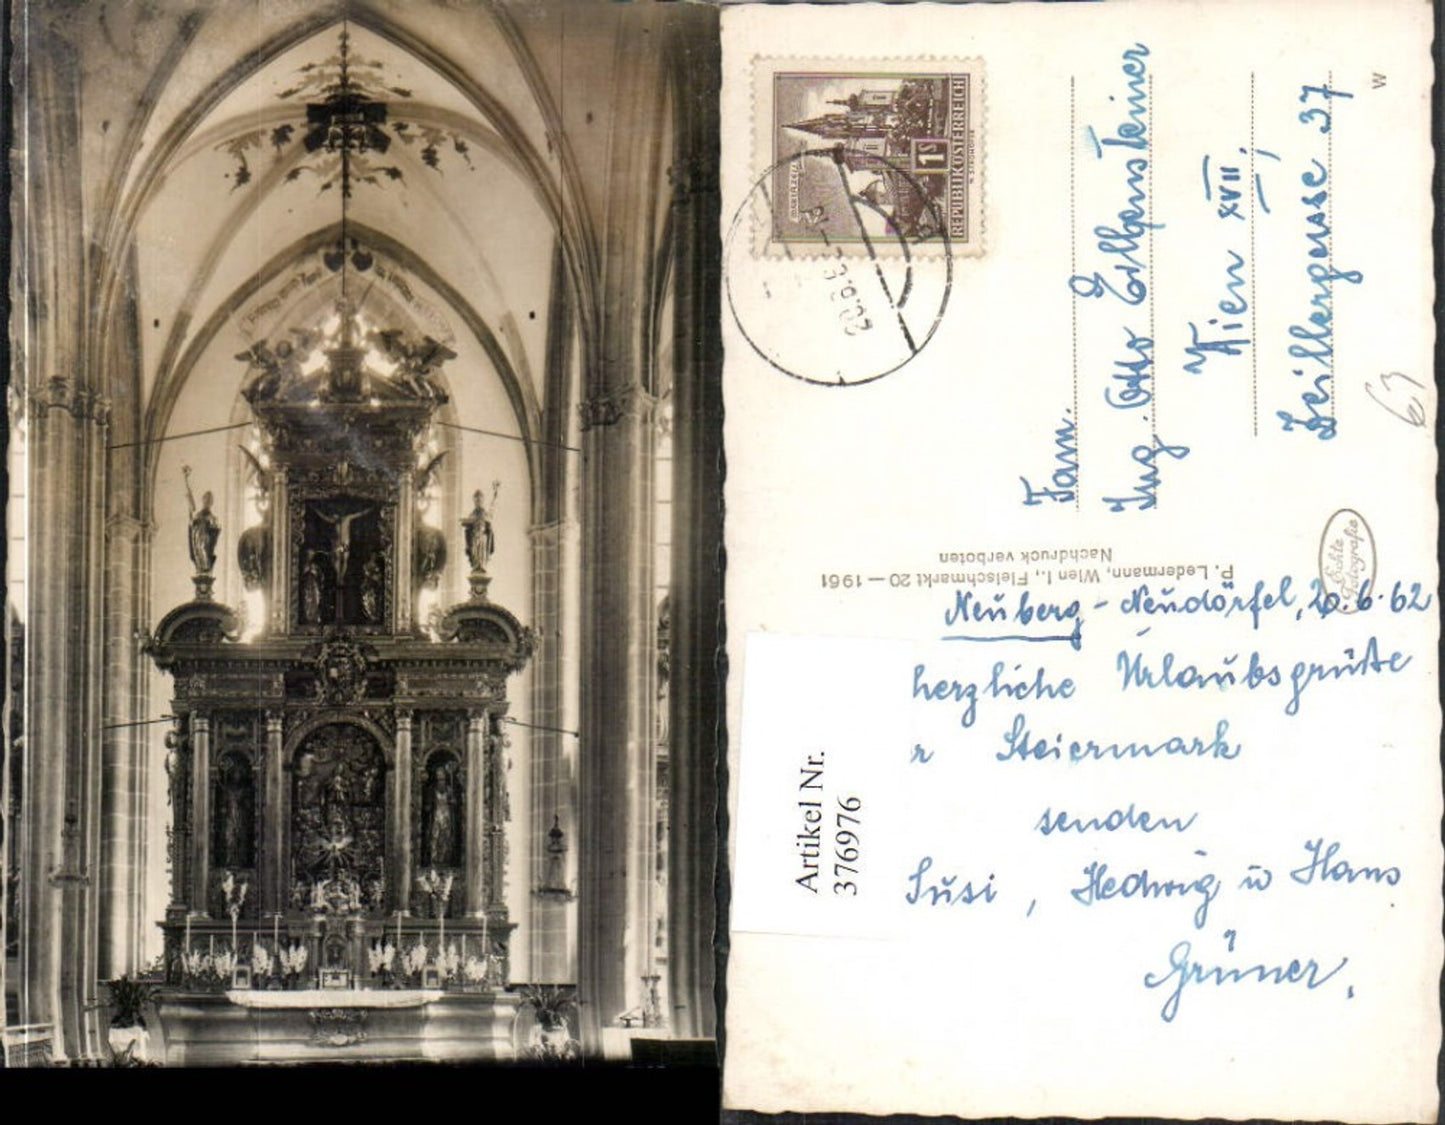 Fam.
Ing. Otto Eilbenssteiner
Wien XVII,
Zeillergasse 37
W
63
REPUBLIK ÖSTERREICH
1S
MARIAZELL
20.6.62
P. Ledermann, Wien I., Fleischmarkt 20 — 1961
Nachdruck verboten
Echte
Fotografie
Neuberg - Neudörfel, 20.6.62
herzliche Urlaubsgrüße
r Steiermark
senden
Susi, Hedwig u Hans
Grüner.
Artikel Nr.
376976